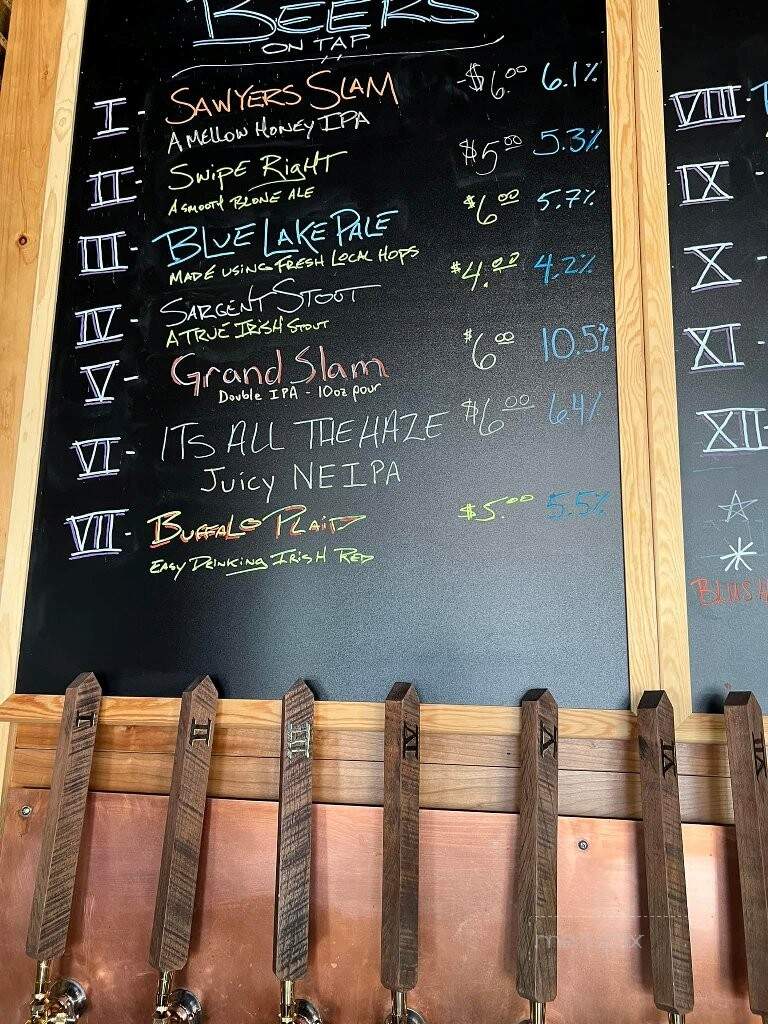 BEERS
ON TAP
I - SAWYERS SLAM -$6.00 6.1%
A MELLOW HONEY IPA
II - SWIPE RIGHT $5.00 5.3%
A SMOOTH BLONE ALE
III - BLUE LAKE PALE $6.00 5.7%
MADE USING FRESH LOCAL HOPS
IV - SARGENT STOUT $4.00 4.2%
A TRUE IRISH STOUT
V - Grand Slam $6.00 10.5%
Double IPA - 10oz pour
VI - ITS ALL THE HAZE $6.00 6.4%
Juicy NEIPA
VII - BUFFALO PLAID $5.00 5.5%
EASY DRINKING IRISH RED
VIII -
IX -
X -
XI -
XII -
I II III IV V VI VII